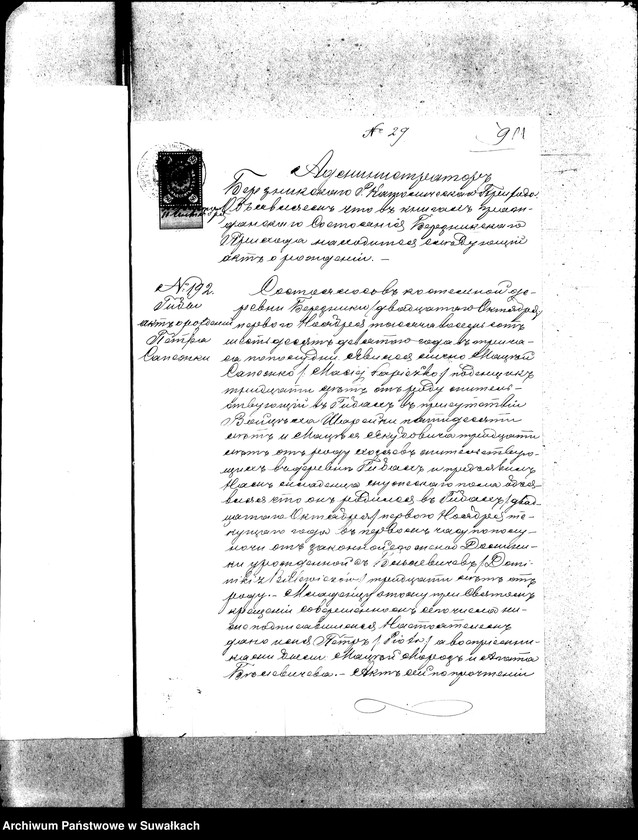 № 29
Администраторъ
Березникскаго Р. Католическаго Прихода
Объявляетъ что въ книгахъ граж-
данскаго Состоянія Березникскаго
Прихода находится слѣдующій
актъ о рожденіи. –
№ 192.
Гибы
актъ о рожденіи
Петра
Сапежки
Состоялось въ костельной де-
ревни Березники / двадцатаго Октября /
перваго Ноября тысяча восемь сотъ
шестьдесятъ девятаго года въ три ча-
са по полудни. Явился лично Мацѣй
Сапежко / Maciej Sapieżko / поденщикъ
тридцати лѣтъ отъ роду житель-
ствующій въ Гибахъ въ присутствіи
Войцѣха пятидесяти
лѣтъ и тридцати
лѣтъ отъ роду жительствую-
щихъ въ деревни Гибахъ и предъявилъ
Намъ младенца мужескаго пола объя-
вляя что онъ родился въ Гибахъ / двад-
цатаго Октября / перваго Ноября те-
кущаго года въ первомъ часу по полу-
ночи отъ законной его жены Домини-
ки урожденной съ Билевичовъ / Domi-
niki z Bilewiczów / тридцати лѣтъ отъ
роду. – Младенцу этому при Святомъ
крещеніи совершенномъ сего числа ни-
же подписавшимся Настоятелемъ
дано имя Петръ / Piotr / а воспріемни-
ками были Мацѣй Морозъ и Агата
– Актъ сей по прочтеніи
Archiwum Państwowe w Suwałkach